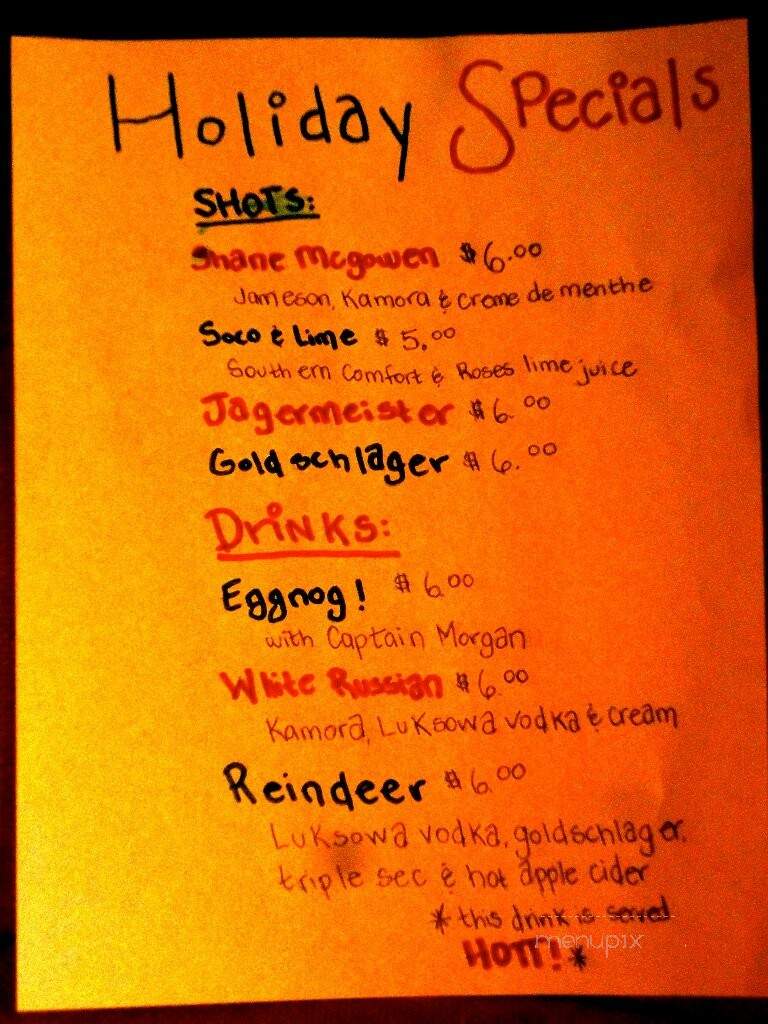 Holiday Specials
SHOTS:
Shane Mcgowen $6.00
Jameson, Kamora & creme de menthe
Soco & Lime $5.00
Southern Comfort & Roses lime juice
Jagermeister $6.00
Goldschlager $6.00
DRINKS:
Eggnog! $6.00
with Captain Morgan
White Russian $6.00
Kamora, Luksowa vodka & cream
Reindeer $6.00
Luksowa vodka, goldschlager,
triple sec & hot apple cider
* this drink is served
menupix
HOTT! *